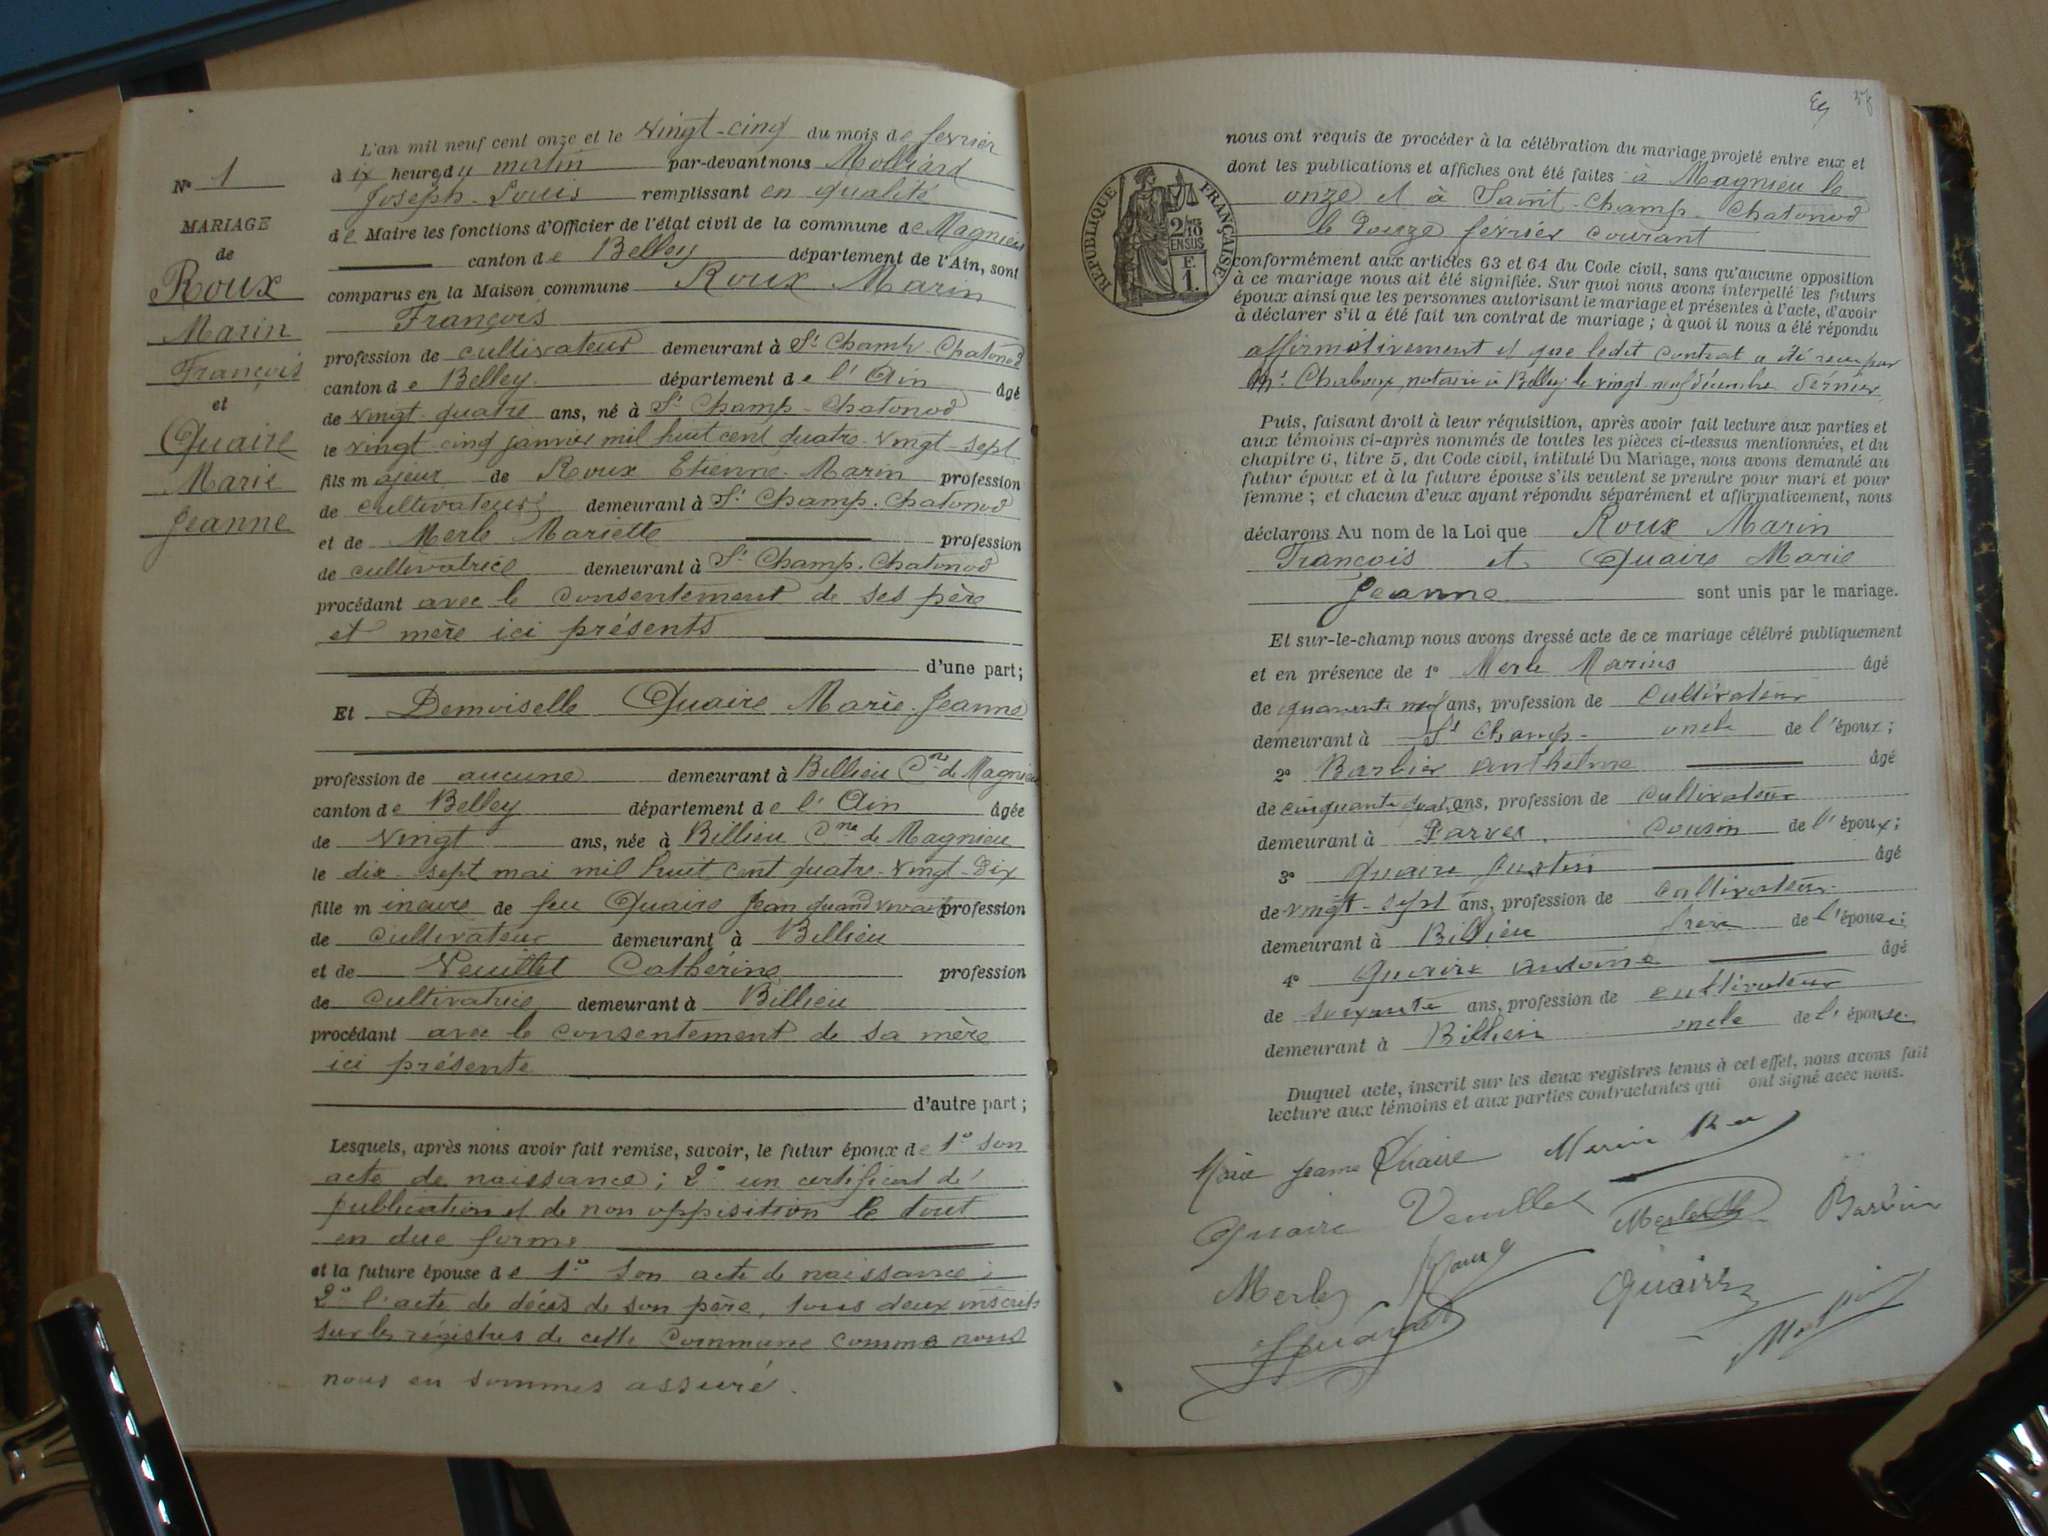 N° 1
MARIAGE
de
Roux
Marin
François
et
Quaire
Marie
Jeanne
L'an mil neuf cent onze et le vingt-cinq du mois de fevrier
à ix heures du matin par-devant nous Molliard
Joseph-Louis remplissant en qualité
de Maire les fonctions d'Officier de l'état civil de la commune de Magnieu
canton de Belley département de l'Ain, sont
comparus en la Maison commune Roux Marin
François
profession de cultivateur demeurant à St Champ-Chatonod
canton de Belley département de l'Ain âgé
de vingt-quatre ans, né à St Champ-Chatonod
le vingt cinq janvier mil huit cent quatre-vingt-sept
fils majeur de Roux Etienne-Marin profession
de cultivateur demeurant à St Champ-Chatonod
et de Merle Mariette profession
de cultivatrice demeurant à St Champ-Chatonod
procédant avec le consentement de ses père
et mère ici présents
d'une part;
Et Demoiselle Quaire Marie-Jeanne
profession de aucune demeurant à Billieu Cne de Magnieu
canton de Belley département de l'Ain âgée
de vingt ans, née à Billieu Cne de Magnieu
le dix-sept mai mil huit cent quatre-vingt-dix
fille mineure de feu Quaire Jean quand vivait profession
de cultivateur demeurant à Billieu
et de Veuillet Catherine profession
de cultivatrice demeurant à Billieu
procédant avec le consentement de sa mère
ici présente
d'autre part;
Lesquels, après nous avoir fait remise, savoir, le futur époux de 1° son
acte de naissance; 2° un certificat de
publication et de non opposition le tout
en due forme
et la future épouse de 1° son acte de naissance;
2° l'acte de décès de son père, tous deux inscrits
sur les registres de cette Commune comme nous
nous en sommes assuré.
RÉPUBLIQUE FRANÇAISE
2/10
EN SUS
F.
1.
nous ont requis de procéder à la célébration du mariage projeté entre eux et
dont les publications et affiches ont été faites à Magnieu le
onze et à Saint-Champ-Chatonod
le douze février courant
conformément aux articles 63 et 64 du Code civil, sans qu'aucune opposition
à ce mariage nous ait été signifiée. Sur quoi nous avons interpellé les futurs
époux ainsi que les personnes autorisant le mariage et présentes à l'acte, d'avoir
à déclarer s'il a été fait un contrat de mariage; à quoi il nous a été répondu
affirmativement et que ledit contrat a été reçu par
Me Chaboux, notaire à Belley le vingt-neuf décembre dernier
Puis, faisant droit à leur réquisition, après avoir fait lecture aux parties et
aux témoins ci-après nommés de toutes les pièces ci-dessus mentionnées, et du
chapitre 6, titre 5, du Code civil, intitulé Du Mariage, nous avons demandé au
futur époux et à la future épouse s'ils veulent se prendre pour mari et pour
femme; et chacun d'eux ayant répondu séparément et affirmativement, nous
déclarons Au nom de la Loi que Roux Marin
François et Quaire Marie
Jeanne sont unis par le mariage.
Et sur-le-champ nous avons dressé acte de ce mariage célébré publiquement
et en présence de 1° Merle Marius âgé
de quarante neuf ans, profession de cultivateur
demeurant à St Champ- oncle de l'époux;
2° Barbier Anthelme âgé
de cinquante quatre ans, profession de cultivateur
demeurant à Parves cousin de l'époux;
3° Quaire Justin âgé
de vingt-sept ans, profession de cultivateur
demeurant à Billieu frère de l'épouse;
4° Quaire Antoine âgé
de soixante ans, profession de cultivateur
demeurant à Billieu oncle de l'épouse.
Duquel acte, inscrit sur les deux registres tenus à cet effet, nous avons fait
lecture aux témoins et aux parties contractantes qui ont signé avec nous.
Marie Jeanne Quaire
Quaire Veuillet Merle Barbier
Merle Roux Quaire